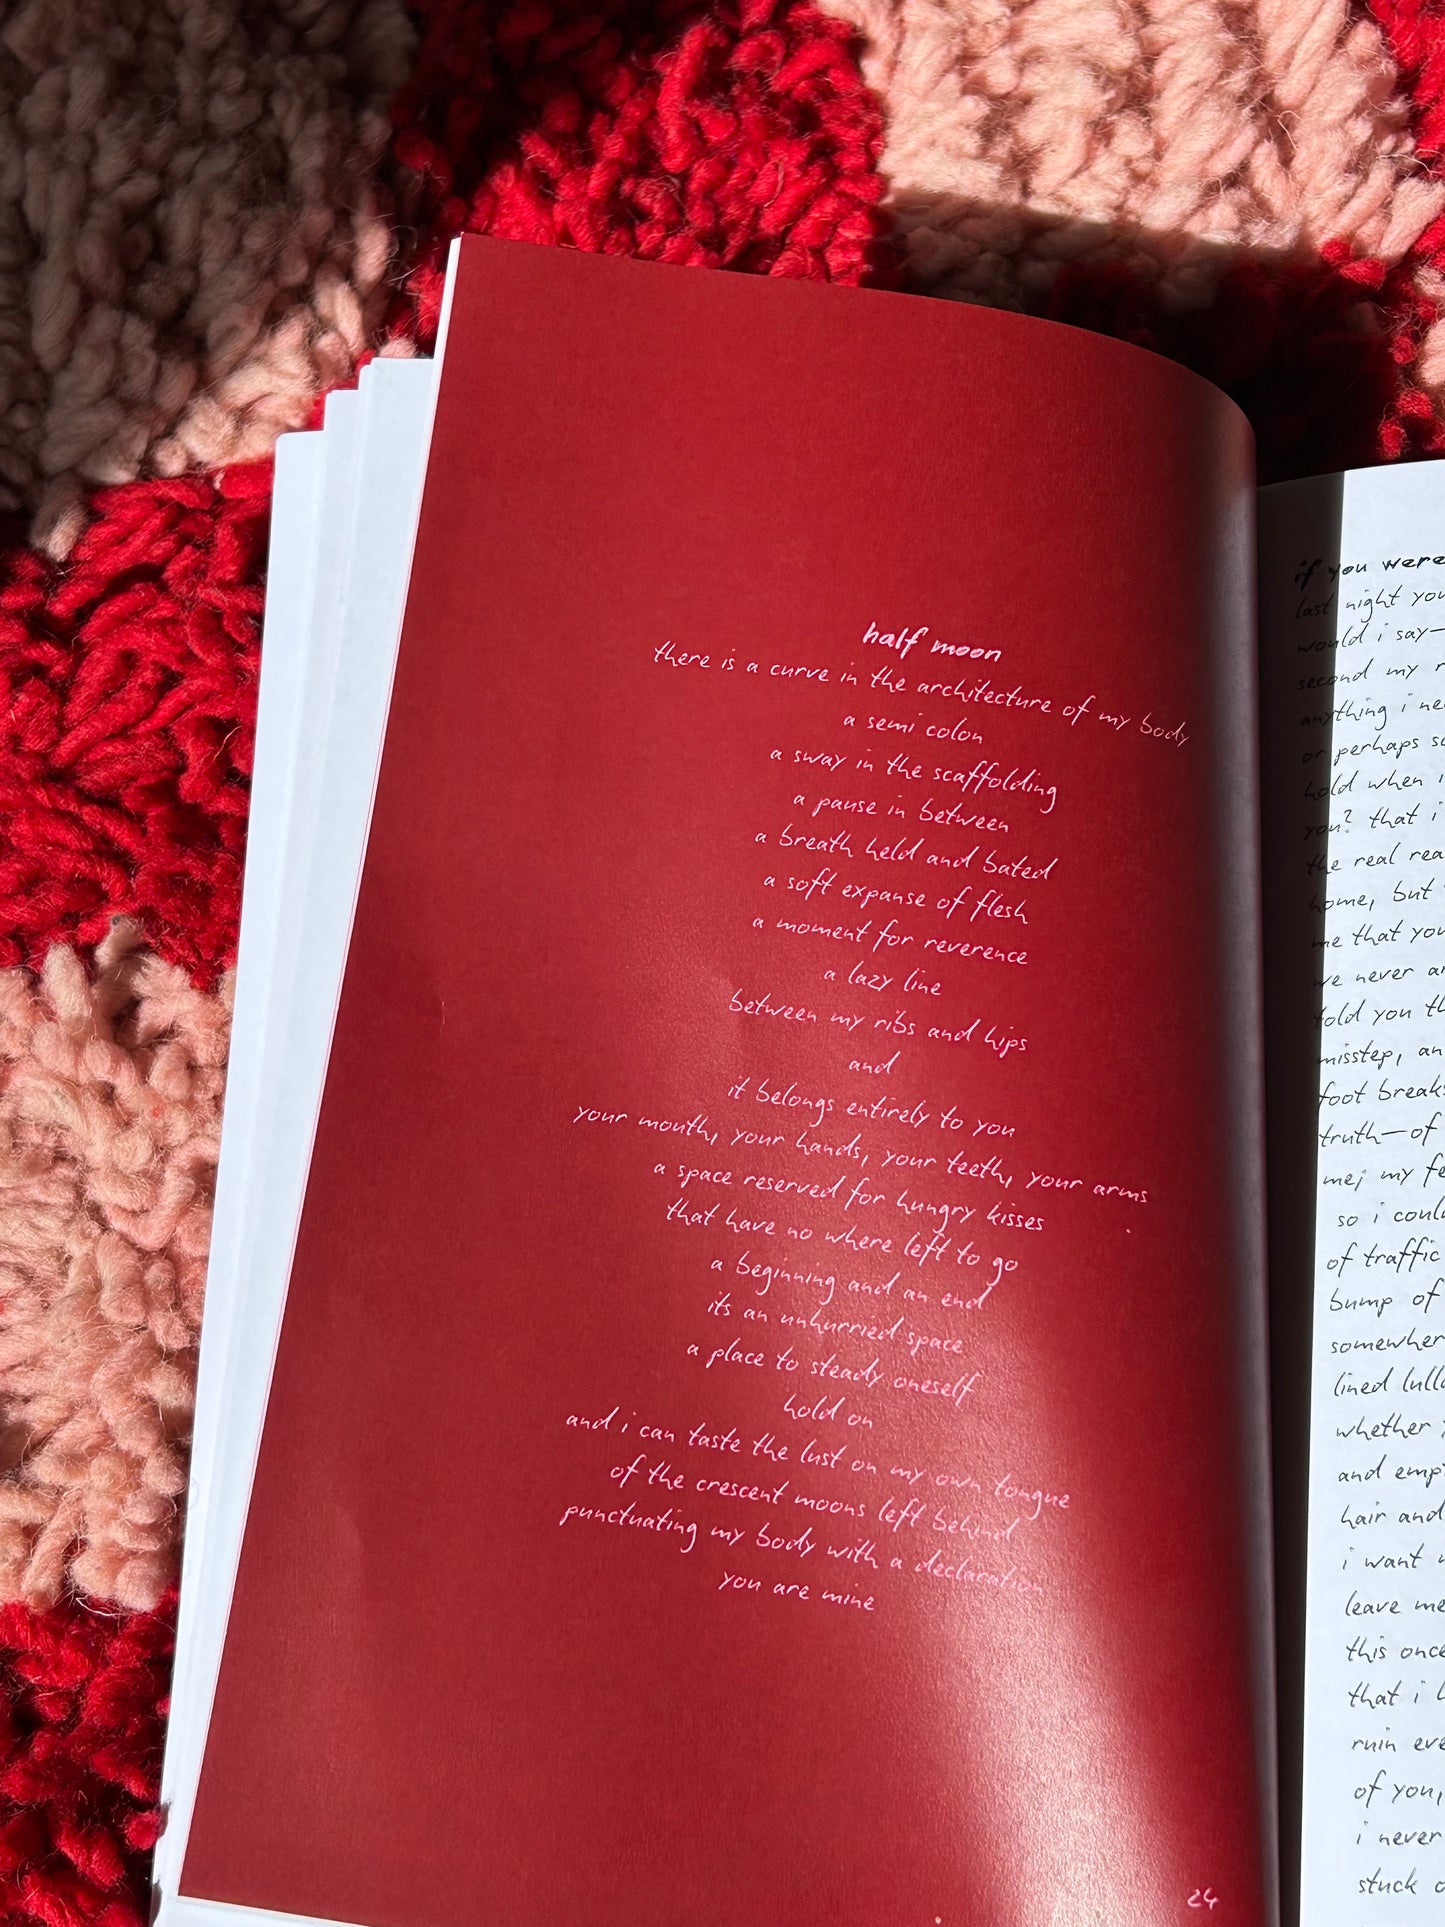 half moon
there is a curve in the architecture of my body
a semi colon
a sway in the scaffolding
a pause in between
a breath held and bated
a soft expanse of flesh
a moment for reverence
a lazy line
between my ribs and hips
and
it belongs entirely to you
your mouth, your hands, your teeth, your arms
a space reserved for hungry kisses
that have no where left to go
a beginning and an end
its an unhurried space
a place to steady oneself
hold on
and i can taste the lust on my own tongue
of the crescent moons left behind
punctuating my body with a declaration
you are mine
24
if you were
last night you
would i say—
second my
anything i
or perhaps
hold when
you? that i
the real
home, but
me that you
we never
told you
misstep,
foot
truth—of
me; my
so i
of traffic
bump of
lined
whether
and
hair and
i want
leave me
this once
that i
ruin
of you,
i never
stuck